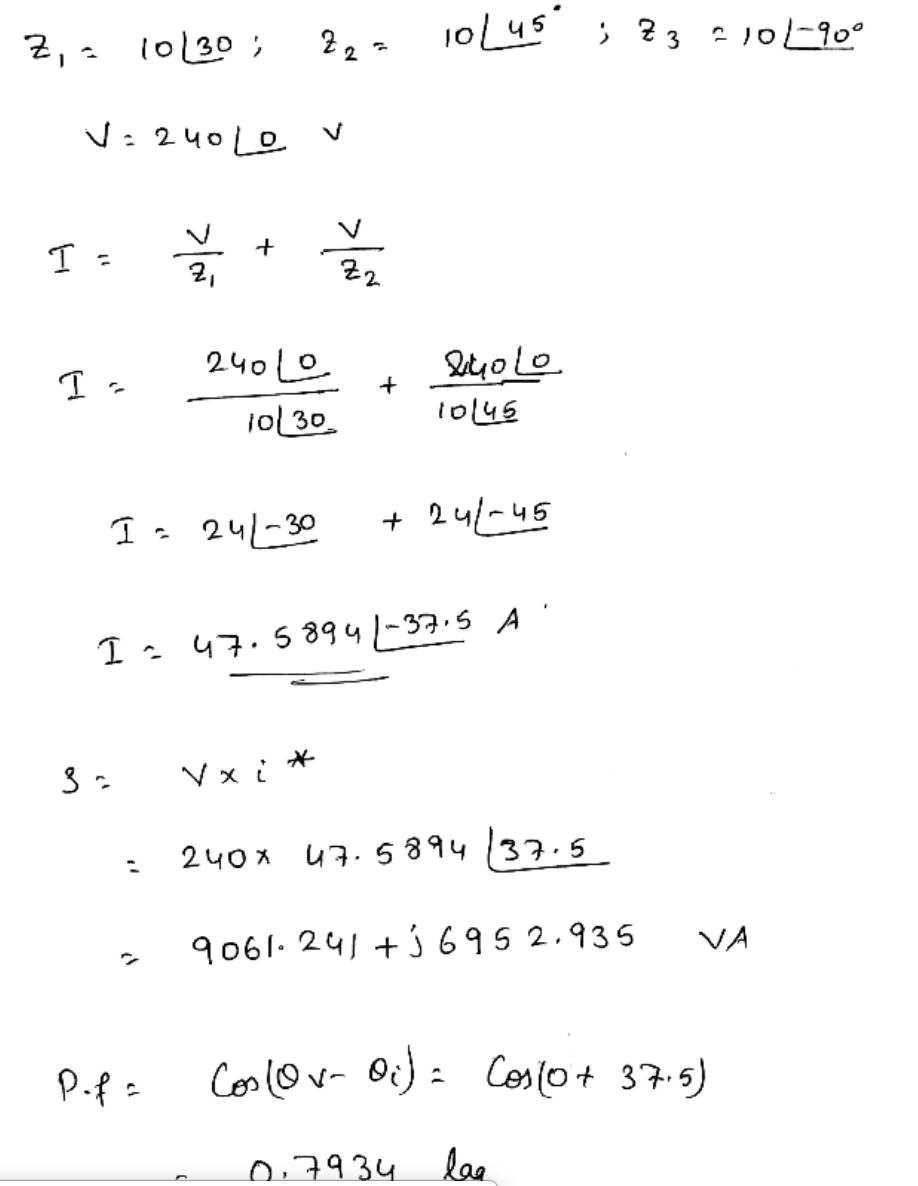 Z₁ = 10∠30 ; Z₂ = 10∠45° ; Z₃ = 10∠-90°
V = 240∠0 V
I = V/Z₁ + V/Z₂
I = 240∠0/10∠30 + 240∠0/10∠45
I = 24∠-30 + 24∠-45
I = 47.5894∠-37.5 A
S = V x i*
= 240 x 47.5894∠37.5
= 9061.241 + j 6952.935 VA
P.f = Cos(θv - θi) = Cos(0 + 37.5)
= 0.7934 lag